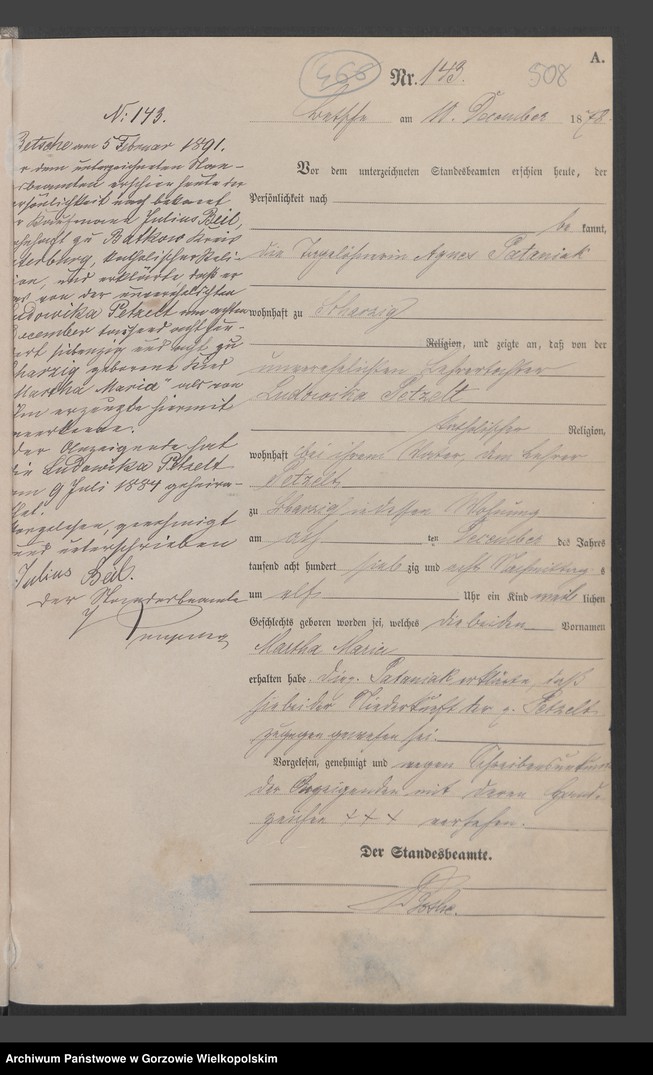 A.
468
Nr. 143.
508
Betsche am 10. December 1878.
Vor dem unterzeichneten Standesbeamten erschien heute, der
Persönlichkeit nach
be kannt,
die Tagelöhnerin Agnes Pataniak
wohnhaft zu Scharzig
Religion, und zeigte an, daß von der
unverehelichten Lehrertochter
Ludowika Petzelt
katholischer Religion,
wohnhaft bei ihrem Vater, dem Lehrer
Petzelt
zu Scharzig in dessen Wohnung
am acht ten December des Jahres
tausend acht hundert sieb zig und acht Nachmittags
um elf Uhr ein Kind weib lichen
Geschlechts geboren worden sei, welches die beiden Vornamen
Martha Maria
erhalten habe. Die p. Pataniak erklärte, daß
sie bei der Niederkunft der p. Petzelt
zugegen gewesen sei.
Vorgelesen, genehmigt und wegen Schreibensunkunde
der Anzeigenden mit deren Hand-
zeichen + + + versehen.
Der Standesbeamte.
N: 143.
Betsche am 5 Februar 1891.
dem unterzeichneten Stan-
desbeamten erschien heute der
Persönlichkeit nach bekannt
Julius Beil,
wohnhaft zu Kreis
katholischer Reli-
gion, und erklärte daß er
das von der unverehelichten
Ludowika Petzelt am achten
December tausend acht hun-
dert siebenzig und acht zu
Scharzig geborene Kind
"Martha Maria" als von
ihm erzeugt hiermit
anerkenne.
Der Anzeigende hat
die Ludowika Petzelt
am 9 Juli 1884 geheira-
thet.
Vorgelesen, genehmigt
und unterschrieben
Julius Beil.
Der Standesbeamte
Archiwum Państwowe w Gorzowie Wielkopolskim